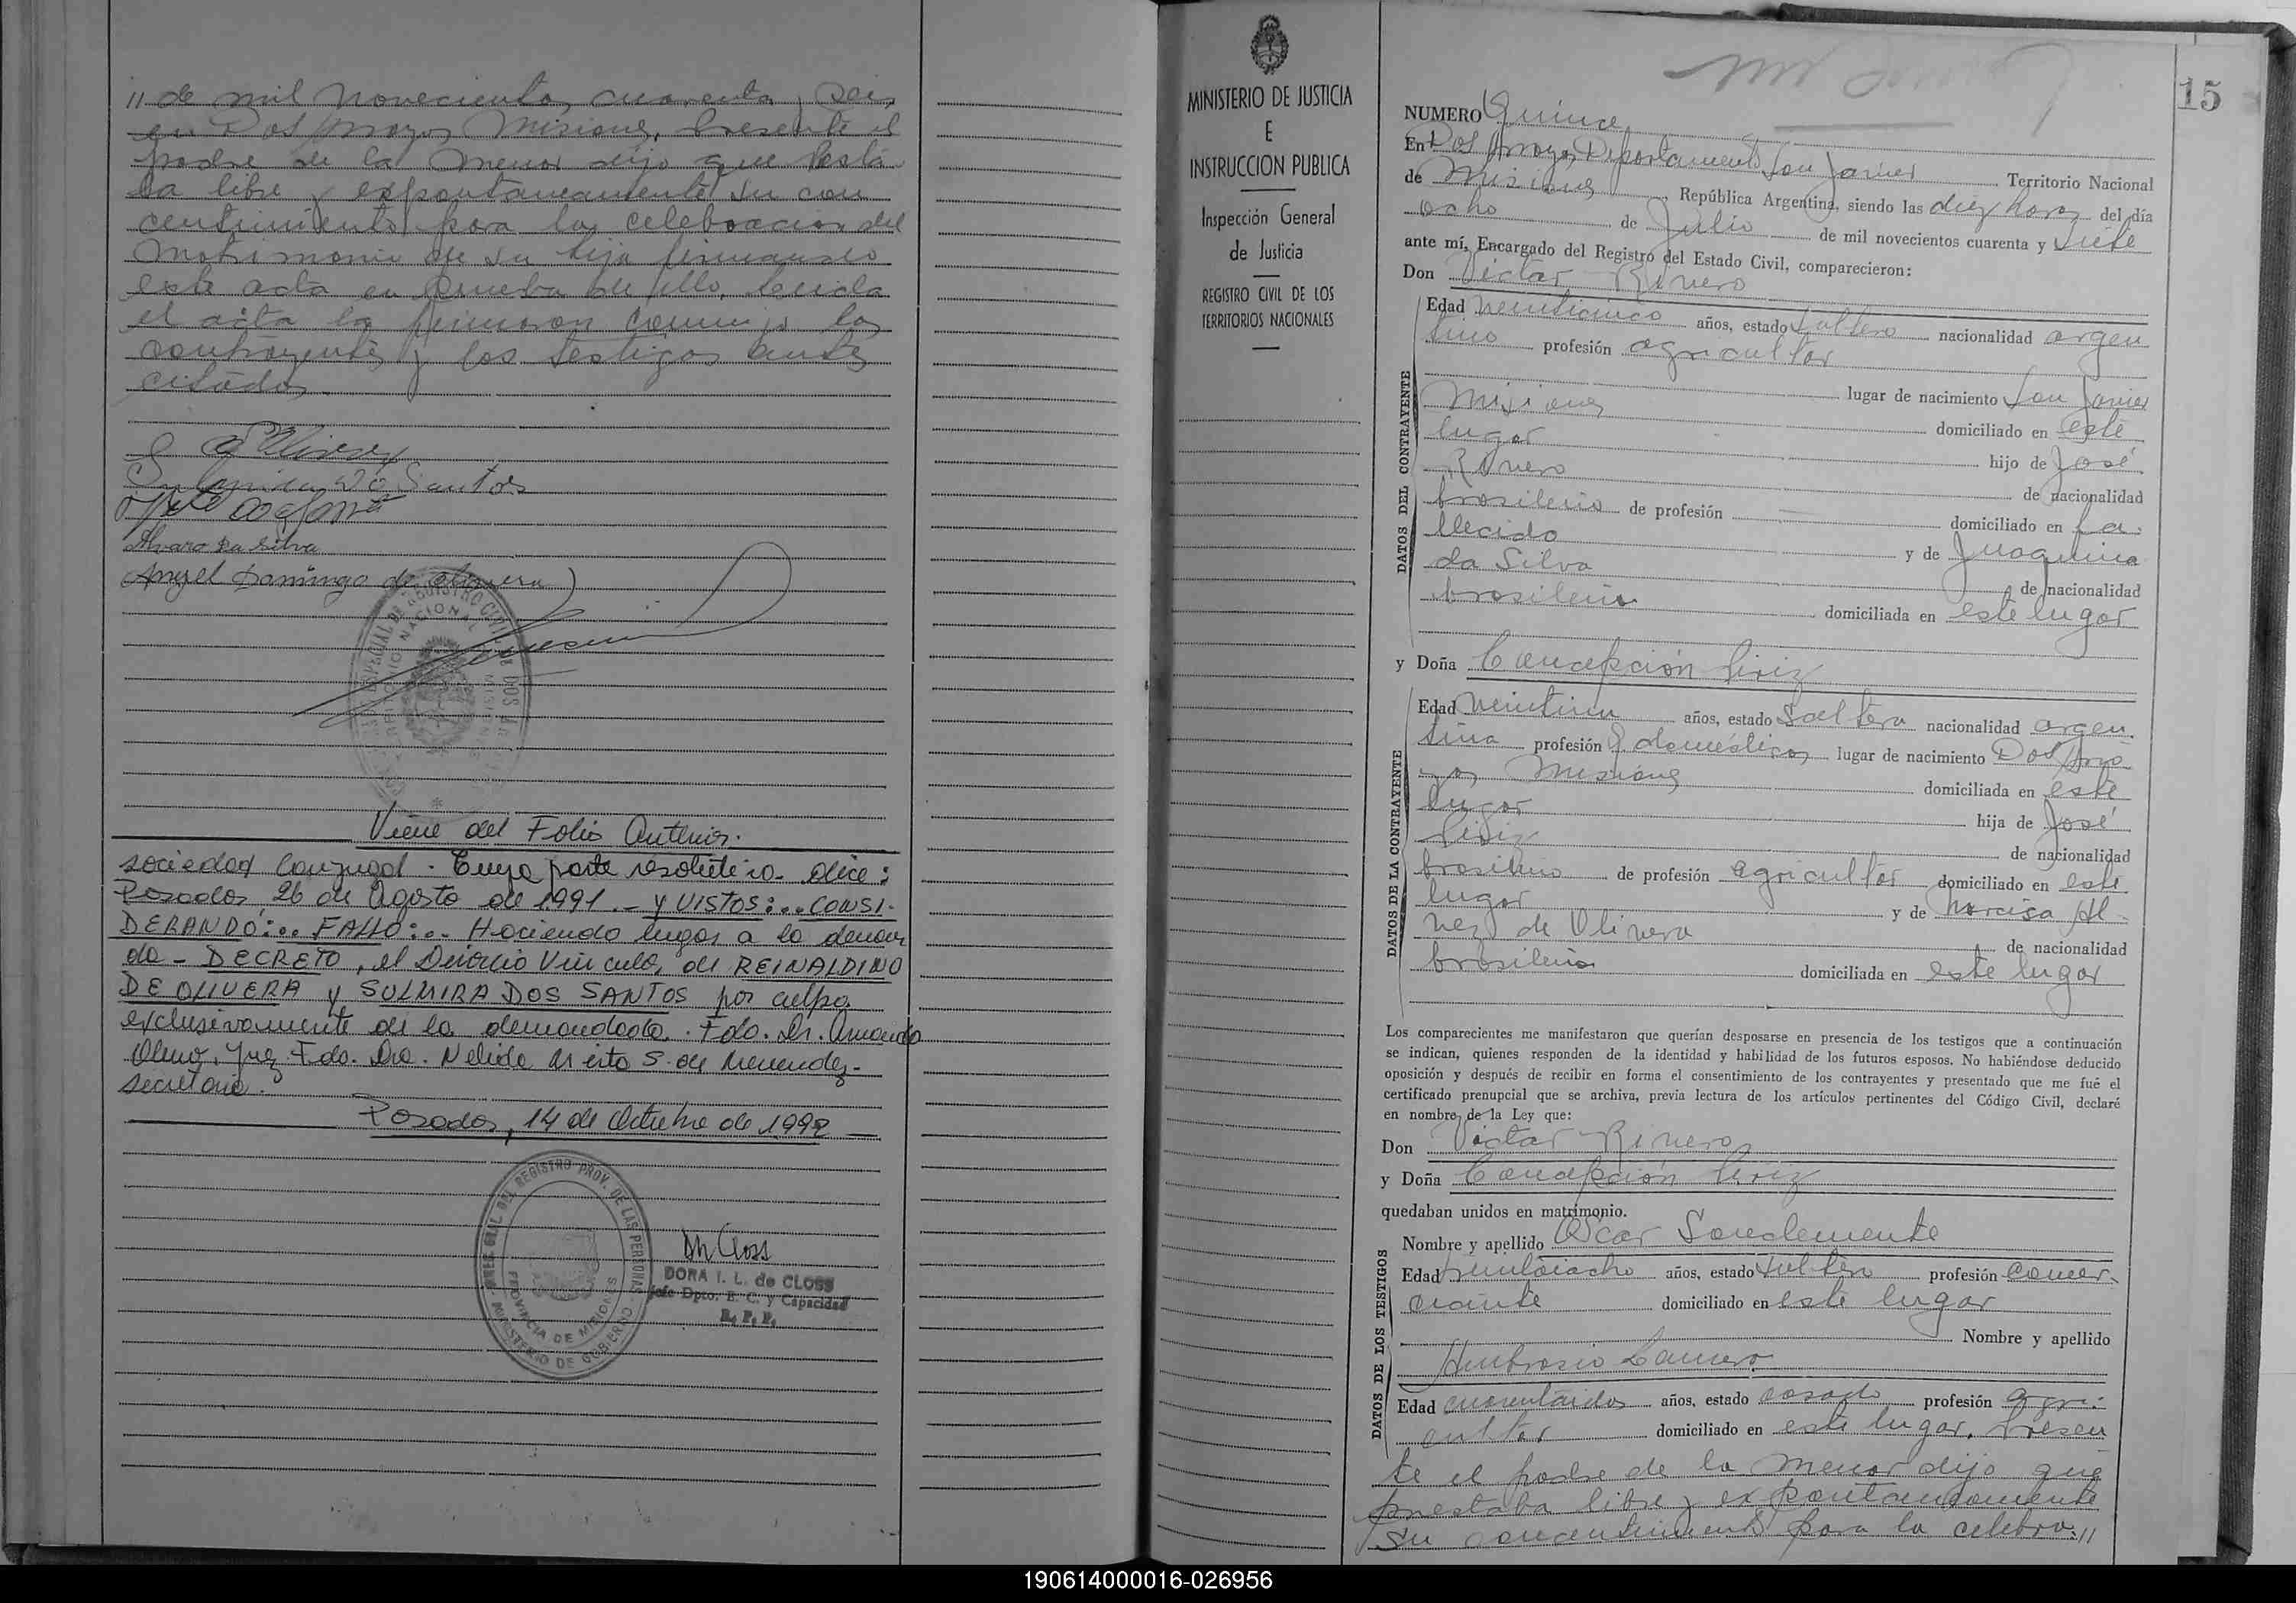 // de mil novecientos cuarenta y seis
en Dos Arroyos Misiones. Presente el
padre de la menor dijo que presta
ba libre y expontaneamente su con
centimiento para la celebracion del
matrimonio de su hija firmando
este acta en prueba de ello. Leida
el acta la firmaron conmigo los
contrayentes y los testigos antes
citados
Dos Santos
Alvaro Da Silva
Angel Domingo de Oliveira
Viene del Folio Anterior.
sociedad Conyugal - Cuya parte resolutiva - dice:
Posadas, 26 de Agosto de 1991.- Y VISTOS:... CONSI-
DERANDO:... FALLO:.. Haciendo lugar a la deman
da - DECRETO, el Divorcio Vincular de REINALDINO
DE OLIVERA y SULMIRA DOS SANTOS por culpa
exclusivamente de la demandada. Fdo. Dr. Armando
Juez. Fdo. Dra. Nelida S. de Menendez-
secretaria.
Posadas, 14 de Octubre de 1992
REGISTRO PROV. DE LAS PERSONAS
PROVINCIA DE MISIONES
MINISTERIO DE GOBIERNO
DORA I. L. de CLOSS
Jefe Dpto. E. C. y Capacidad
R. P. P.
MINISTERIO DE JUSTICIA
E
INSTRUCCION PUBLICA
Inspección General
de Justicia
REGISTRO CIVIL DE LOS
TERRITORIOS NACIONALES
15
NUMERO Quince
En Dos Arroyos Departamento San Javier Territorio Nacional
de Misiones, República Argentina, siendo las diez horas del día
ocho de Julio de mil novecientos cuarenta y siete
ante mí, Encargado del Registro del Estado Civil, comparecieron:
Don Victar Rivero
DATOS DEL CONTRAYENTE
Edad veinticinco años, estado soltero nacionalidad argen
tino profesión agricultor
lugar de nacimiento San Javier
Misiones domiciliado en este
lugar hijo de José
Rivero de nacionalidad
brasileño de profesión domiciliado en fa-
llecido y de Juaquina
da Silva de nacionalidad
brasileña domiciliada en este lugar
y Doña Concepción Piriz
DATOS DE LA CONTRAYENTE
Edad veintiun años, estado soltera nacionalidad argen-
tina profesión q domésticos lugar de nacimiento Dos Arro
yos Misiones domiciliada en este
lugar hija de José
Piriz de nacionalidad
brasileño de profesión agricultor domiciliado en este
lugar y de Narcisa Al-
vez de Olivera de nacionalidad
brasileña domiciliada en este lugar
Los comparecientes me manifestaron que querían desposarse en presencia de los testigos que a continuación
se indican, quienes responden de la identidad y habilidad de los futuros esposos. No habiéndose deducido
oposición y después de recibir en forma el consentimiento de los contrayentes y presentado que me fué el
certificado prenupcial que se archiva, previa lectura de los artículos pertinentes del Código Civil, declaré
en nombre de la Ley que:
Don Victar Rivero
y Doña Concepción Piriz
quedaban unidos en matrimonio.
DATOS DE LOS TESTIGOS
Nombre y apellido Oscar Sanclemente
Edad treintaiocho años, estado soltero profesión comer-
ciante domiciliado en este lugar
Nombre y apellido
Ambrosio
Edad cuarentaidos años, estado casado profesión agri-
cultor domiciliado en este lugar. Presen
te el padre de la menor dijo que
prestaba libre y expontaneamente
su concentimiento para la celebra- //
190614000016-026956